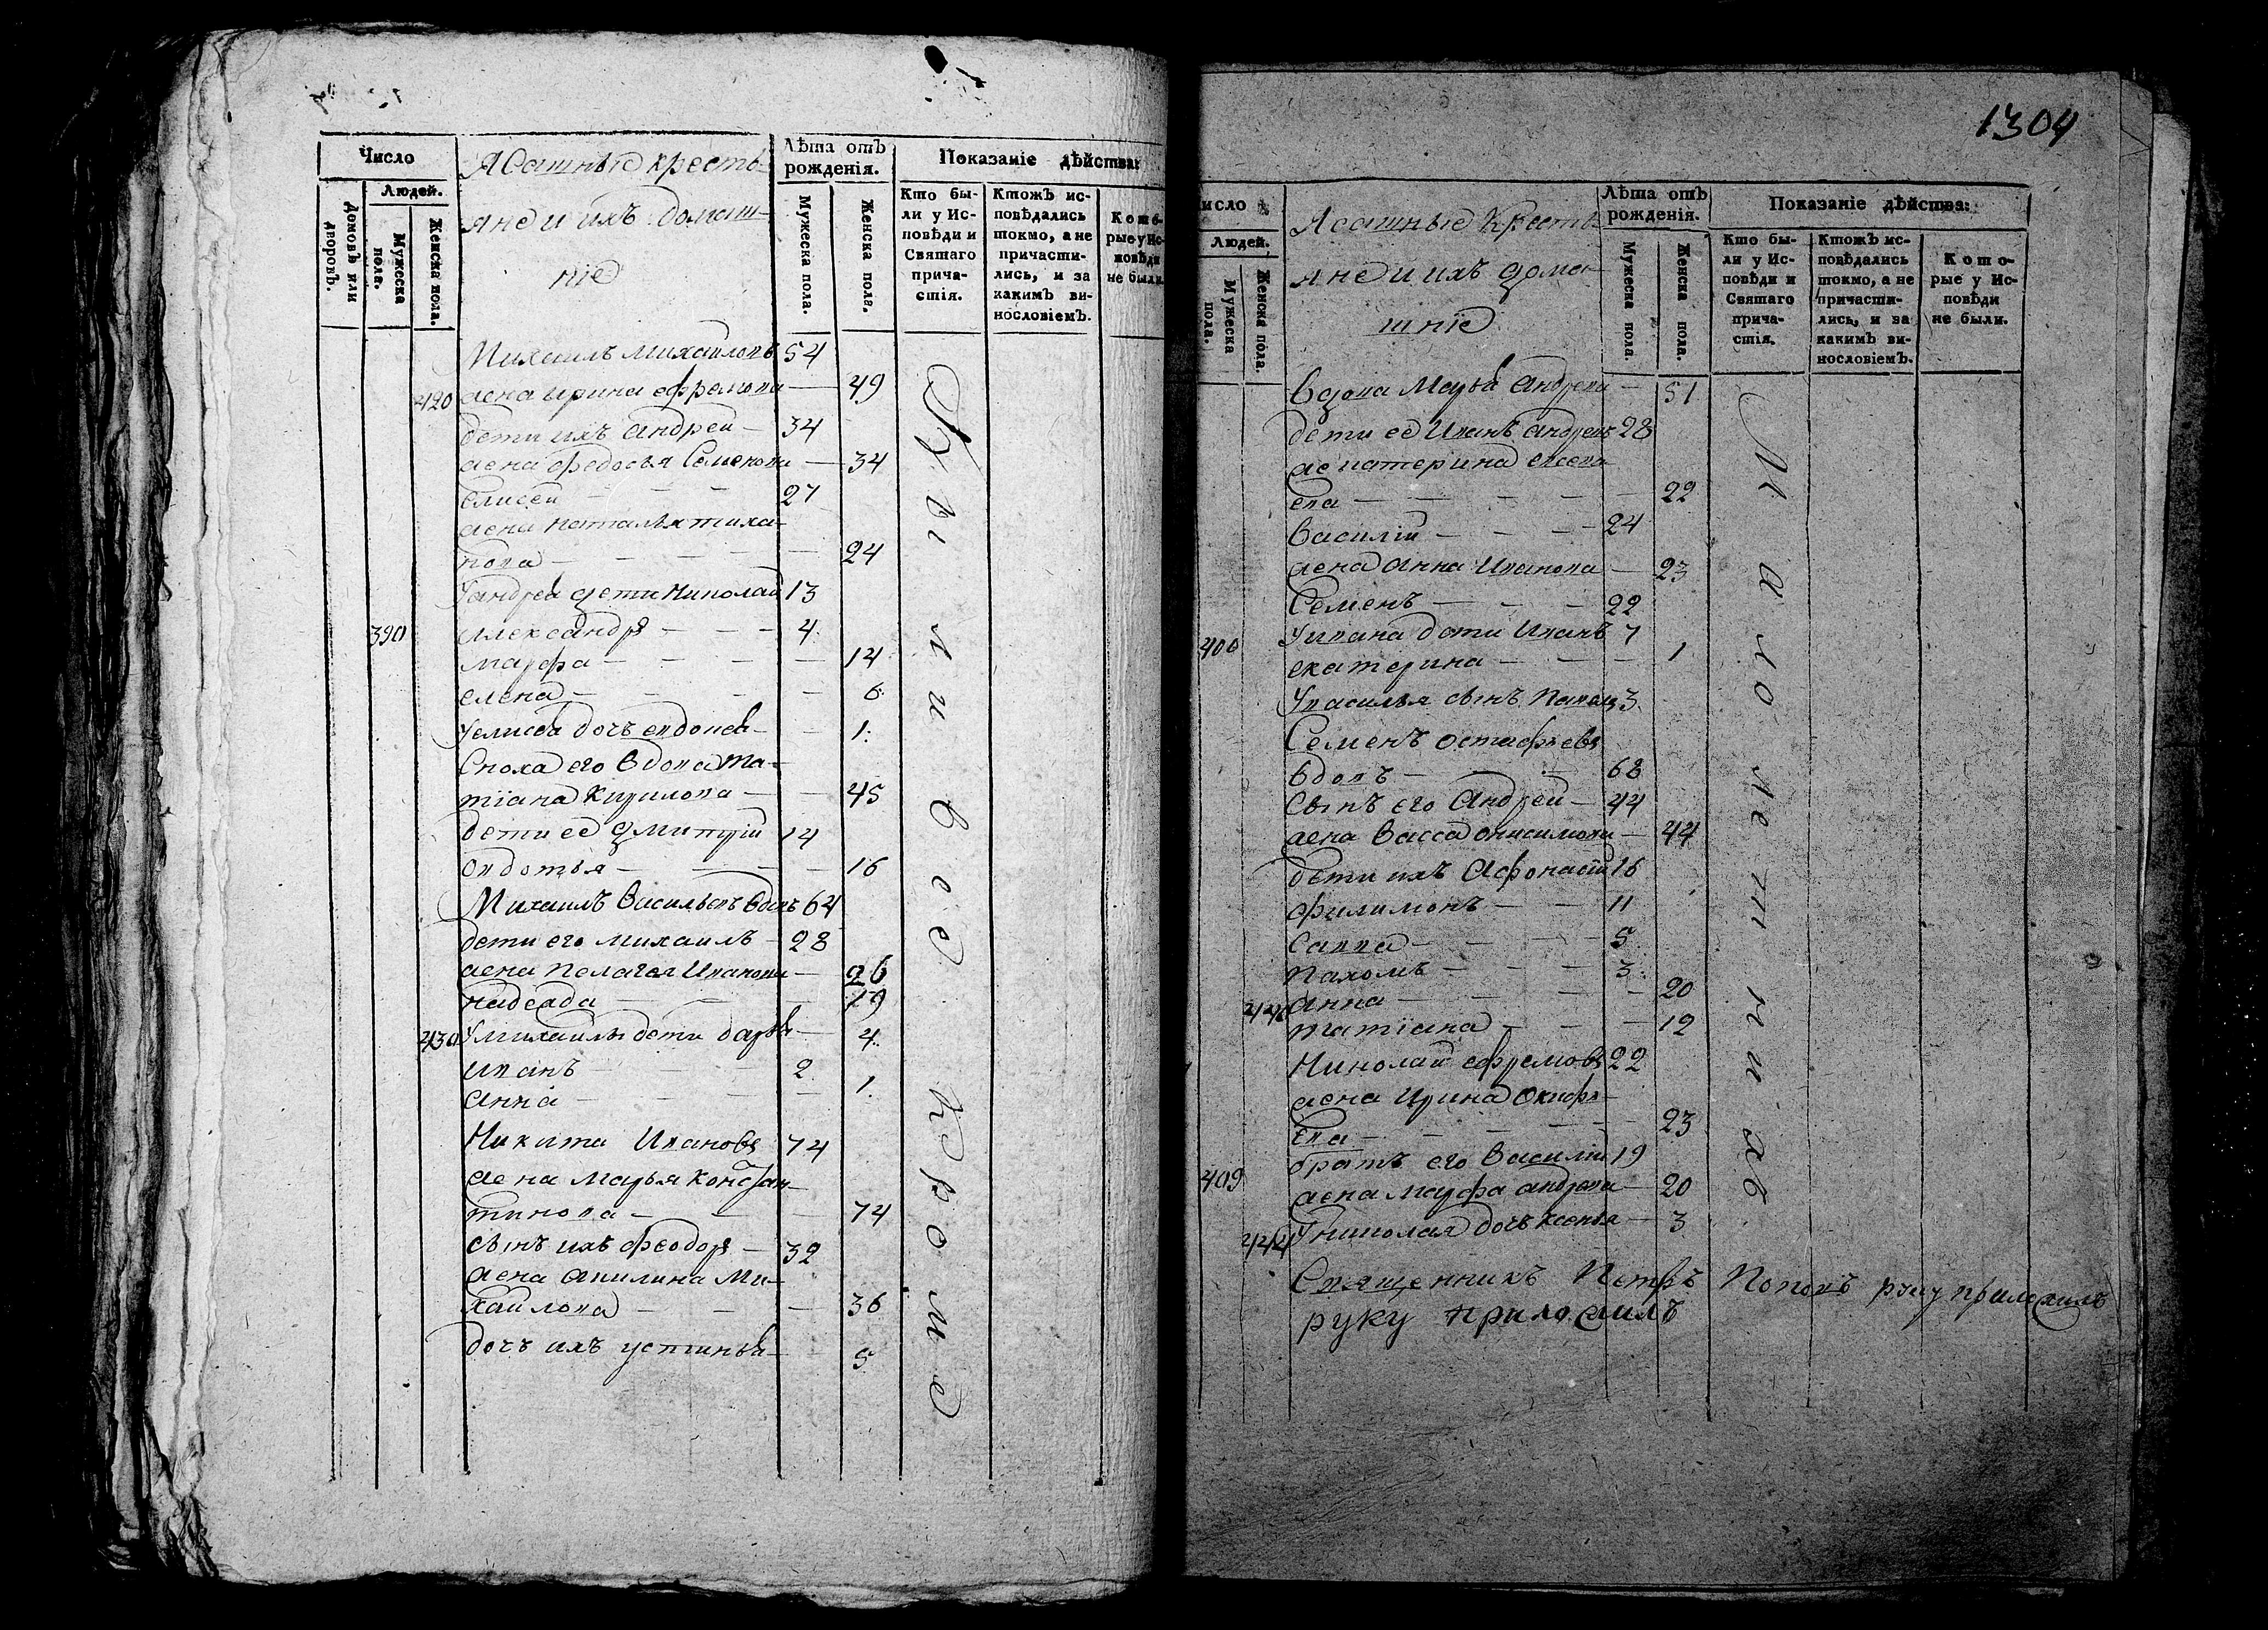 Число
Ясашные кресть-
яне и ихъ домаш-
ніе
Лѣта отъ рожденія.
Показаніе дѣйства:
Людей.
Домовъ или дворовъ.
Мужеска пола.
Женска пола.
Мужеска пола.
Женска пола.
Кто бы-
ли у Ис-
повѣди и
Святаго
прича-
стія.
Ктожъ ис-
повѣдались
токмо, а не
причасти-
лись, и за
какимъ ви-
нословіемъ.
Кото-
рые у Ис-
повѣди
не были
Михаилъ Михаиловъ 54
420 жена ирина ефремова — 49
дети ихъ андреи — 34
жена федосья Семенова — 34
елисеи — — — 27
жена наталья тиха-
нова — — — — 24
У андрея дети николаи 13
390 александръ — — — 4
марфа — — — — 14
елена — — — — 6
У елисея дочь евдокея — — 1
Сноха его вдова та-
тіана Кирилова — — 45
дети ее дмитріи 14
Овдотья — — — 16
Михаилъ Васильевъ вдовъ 64
дети его михаилъ — 28
жена пелагея Иванова — 26
надежда — — — 19
430 У михаилы дети дарья — 4
иванъ — — — 2
анна — — — — 1
Никита Ивановъ 74
жена марья констан-
тинова — — — 74
сынъ ихъ феодоръ — 32
жена акилина Ми-
хаилова — — — 36
дочь ихъ устинья — 5
Были вес. кроме
1304
исло
Ясашные Кресть-
яне и ихъ дома-
шніе
Лѣта отъ рожденія.
Показаніе дѣйства:
Людей.
Мужеска пола.
Женска пола.
Мужеска пола.
Женска пола.
Кто бы-
ли у Ис-
повѣди и
Святаго
прича-
стія.
Ктожъ ис-
повѣдались
токмо, а не
причасти-
лись, и за
какимъ ви-
нословіемъ.
Кото-
рые у Ис-
повѣди
не были.
вдова Марья андреева — 51
дети ее Иванъ андреевъ 28
же катерина евсеви-
ева — — — — — 22
Василіи — — — 24
жена анна Иванова — 23
Семенъ — — — 22
400 У ивана дети Иванъ 7
екатерина — — — 1
У василья сынъ Павелъ 3
Семенъ остафьевъ
вдовъ — — — 68
Сынъ его Андреи — 44
жена васса онисимова — 44
дети ихъ Афонасіи 16
филимонъ — — 11
Савва — — — 5
пахомъ — — — 3
440 анна — — — — 20
татіана — — — 12
Николаи ефремовъ 22
жена Ирина Окифь-
ева — — — — 23
братъ его Василіи 19
409 жена марфа андреева — 20
444 У николая дочь ксенья — 3
Малолетнихъ
Священникъ Петръ Поповъ руку приложилъ
руку приложилъ